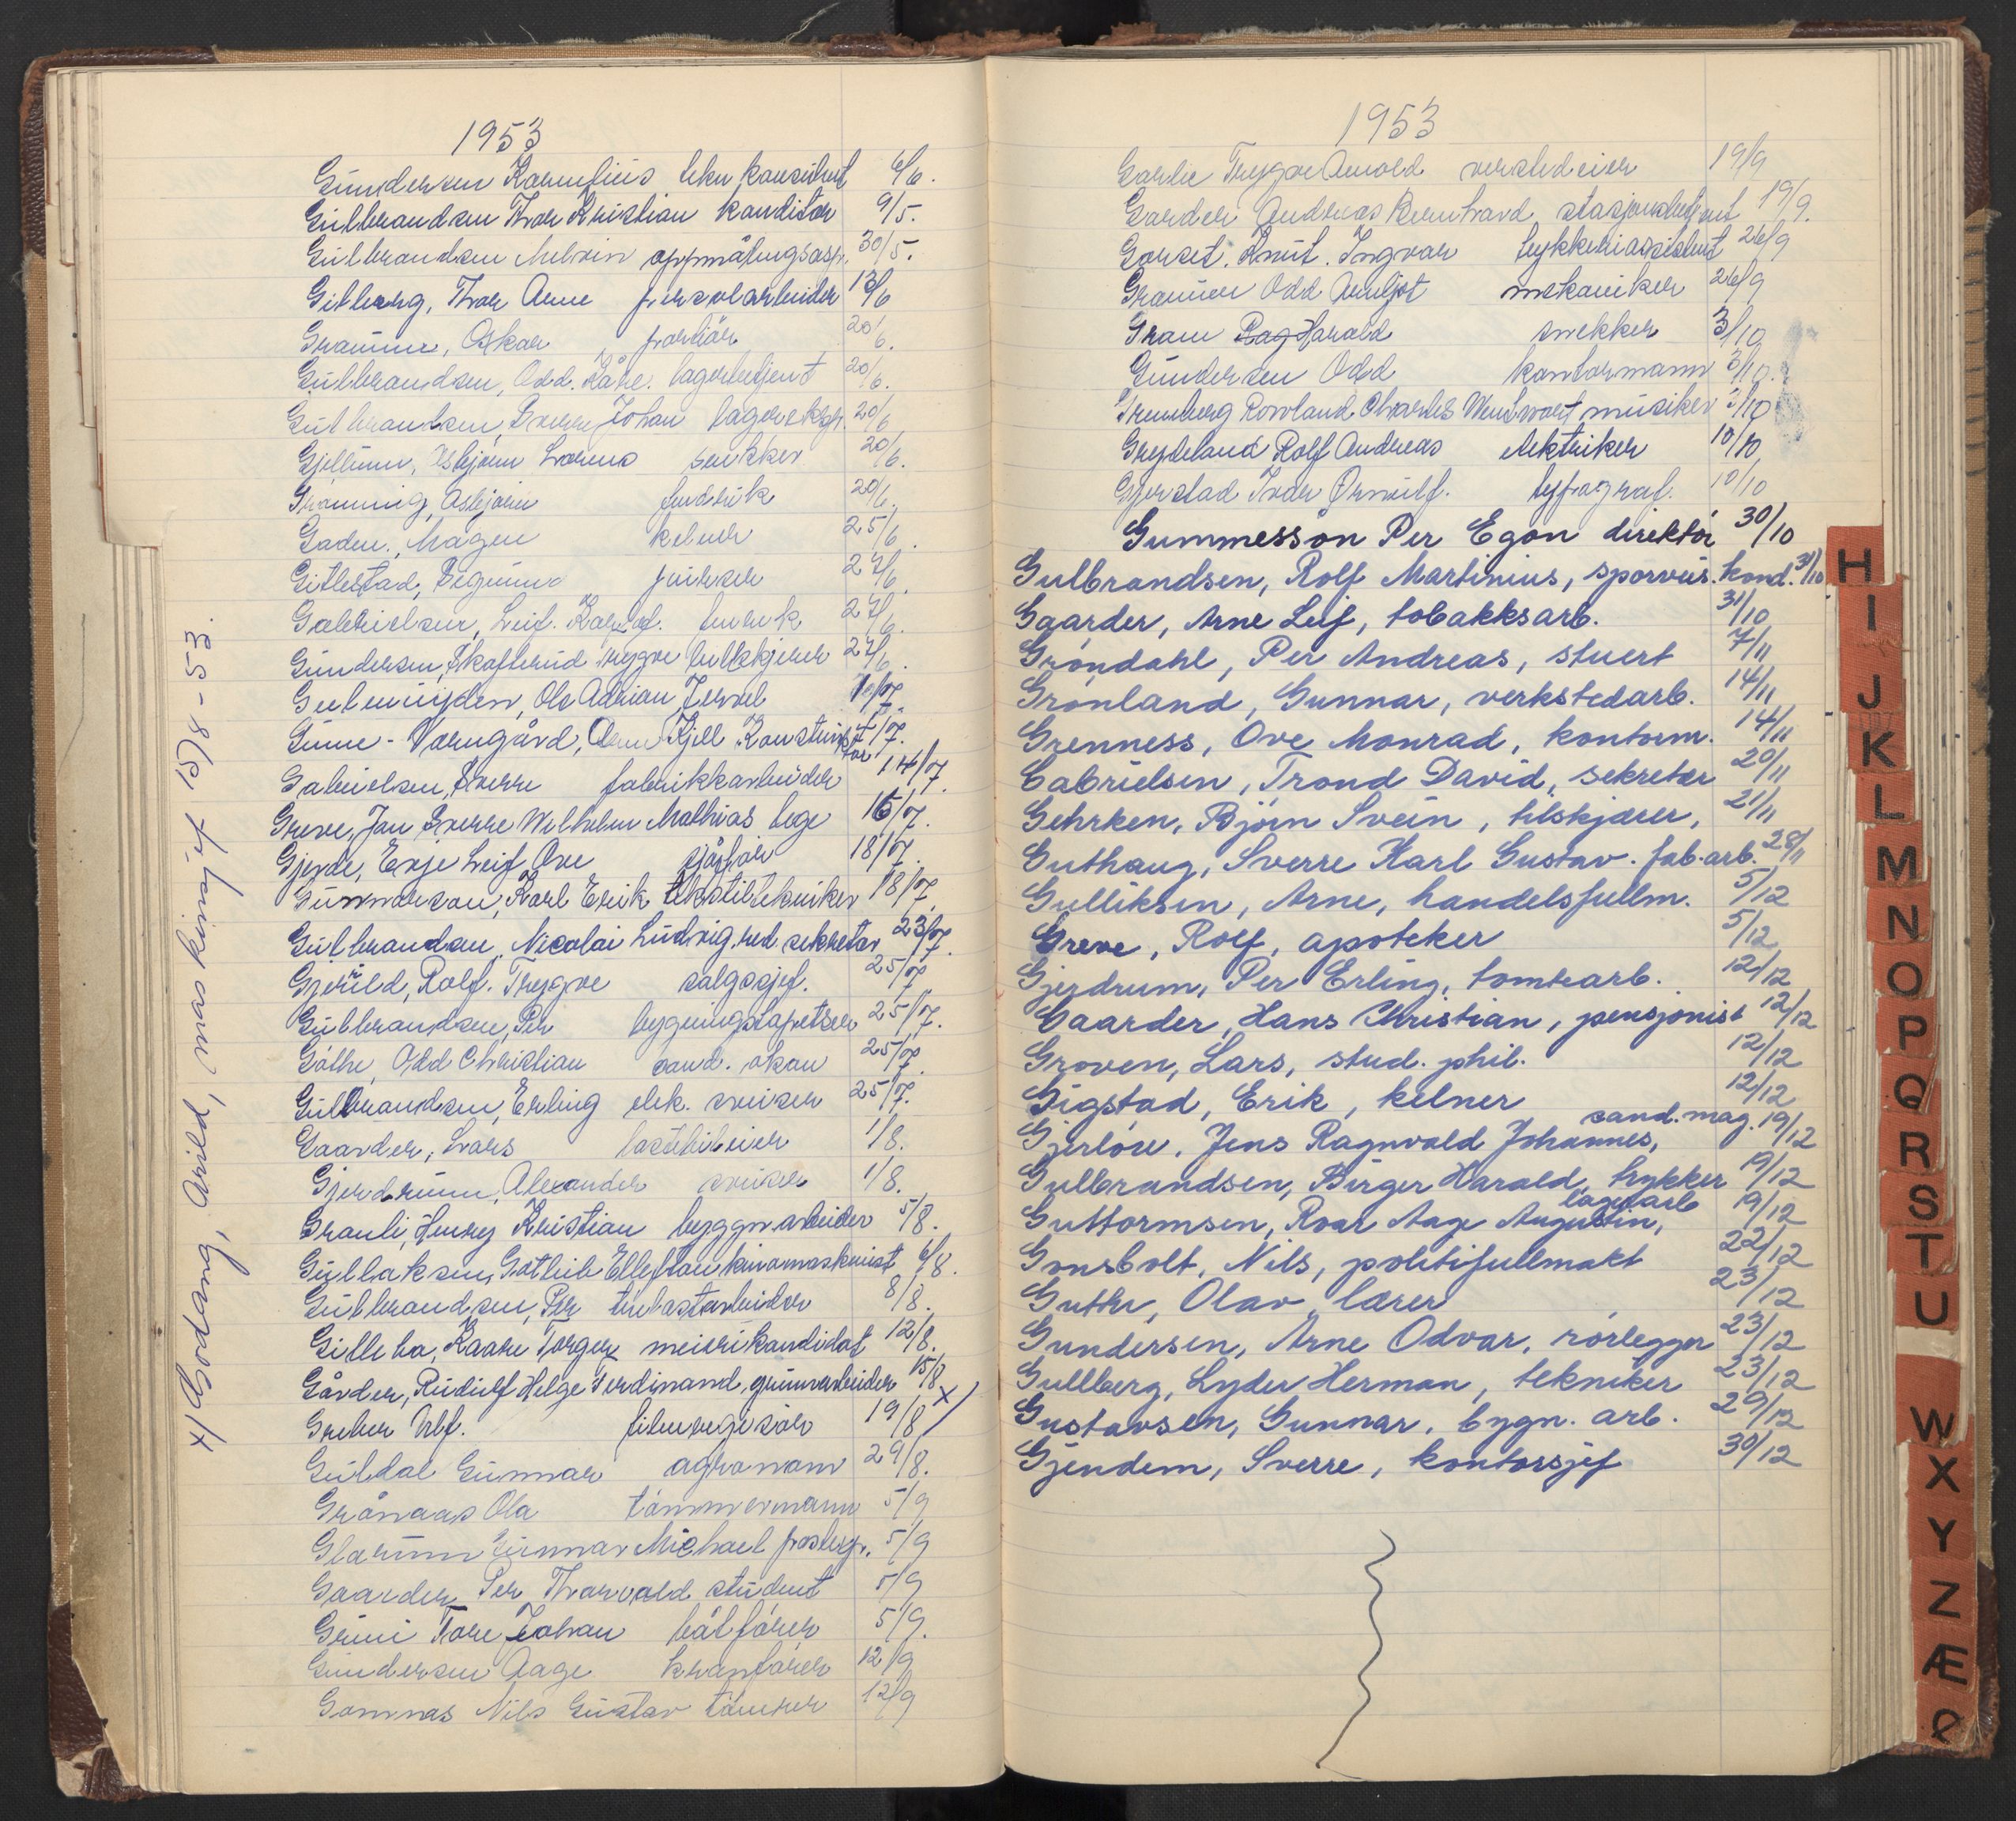 1953
Gundersen Kornelius tekn. konsulent 6/6.
Gulbrandsen Thor Kristian konditor 9/5.
Gulbrandsen Melvin oppmålingsass. 30/5.
Gitberg, Thor Arne jernvarearbeider 13/6
Gramme, Oskar portiør 20/6.
Gulbrandsen, Odd. Kåre. lagerbetjent 20/6.
Gulbrandsen, Sverre Johan lagereksp. 20/6
Gjellum, Asbjørn Lorens snekker 20/6.
Granning, Asbjørn 20/6.
Gaden., Magen kelner 25/6.
Gitlestad, Sigmund 27/6.
Gabrielsen, Leif. 27/6.
Gundersen, Skofterud Trygve tilskjærer 27/6.
Gulmuyden, Ole Adrian 10/7.
Gume - Varngård, Arne Kjell Konstruktør 11/7.
Gabrielsen, Sverre fabrikkarbeider 14/7.
Greve, Jan Sverre Wilhelm Mathias lege 16/7.
Gjerde, Erje Leif Ove sjåfør 18/7.
Gunnarson, Karl Erik tekstiltekniker 18/7.
Gulbrandsen, Nicolai Ludvig. red. sekretær 23/7.
Gjeruld, Rolf. Trygve salgssjef. 25/7.
Gulbrandsen, Per bygningstapetserer 25/7.
Göthe, Odd Christian cand. økon 25/7.
Gulbrandsen, Erling elek. sveiser 25/7.
Gaarder, Lars lastebileier 1/8.
Gjerdrum, Alexander sveiser 1/8.
Grauli, Henry Kristian byggn.arbeider 5/8.
Gullaksen, Gotleib Elleftau kinomaskinist 6/8.
Gulbrandsen, Per 8/8.
Gilleba, Kaare Torger meierikandidat 12/8.
Gårder, Rudulf Helge Ferdinand, gummiarbeider 15/8 x)
Greber Ulf. filmregissör 19/8
Guldal Gunnar agronom 29/8.
Grånaas Ola tømmermann 5/9
Glarum Gunnar Michael posteksp. 5/9
Gaarder Per Thorvald student 5/9
Gruni Tore Johan båtfører 5/9.
Gundersen Aage kranfører 12/9
Gomnas Nils Gustav tømrer 12/9
x) Godang, Arild, maskinsjef 15/8 - 53.
1953
Garlie Trygve Arnold verkstedeier 19/9
Garder Andreas Bernhard, stasjonsbetjent 19/9.
Gorset. Knut. Ingvar trykkeriassistent 26/9
Grønner Odd Arnljot mekaniker 26/9
Gram Harald snekker 3/10
Gundersen Odd kontormann 3/10.
Grenberg Rowland Charles Wentwort musiker 3/10
Grydeland Rolf Andreas elektriker 10/10
Gjerstad Ivar Ørnulf. typograf. 10/10
Gummesson Per Egon direktör 30/10
Gulbrandsen, Rolf Martinius, sporveis.kond. 31/10
Gaarder, Arne Leif, tobakksarb. 31/10
Gröndahl, Per Andreas, stuert 7/11
Grönland, Gunnar, verkstedarb. 14/11
Grenness, Ove Monrad, kontorm. 14/11
Gabrielsen, Trond David, sekretær 20/11
Gehrken, Björn Svein, tilskjærer, 21/11
Guthaug, Sverre Karl Gustav. fab.arb. 28/11
Gulliksen, Arne, handelsfullm. 5/12
Greve, Rolf, apoteker 5/12
Gjerdrum, Per Erling, tomtearb. 12/12
Gaarder, Hans Christian, pensjonist 12/12
Groven, Lars, stud. phil. 12/12
Gigstad, Erik, kelner 12/12
Gjerlöw, Jens Ragnvald Johannes, cand. mag. 19/12
Gulbrandsen, Birger Harald, trykker 19/12
Guttormsen, Roar Aage Augustin, lagerarb 19/12
Gonsholt, Nils, politifullmakt 22/12
Guttu, Olav, lærer 23/12
Gundersen, Arne Odvar, rörlegger 23/12
Gullberg, Lyder Herman, tekniker 23/12
Gustavsen, Gunnar, bygn. arb. 29/12
Gjendem, Sverre, kontorsjef 30/12
H
I
J
K
L
M
N
O
P
Q
R
S
T
U
W
X
Y
Z
Æ